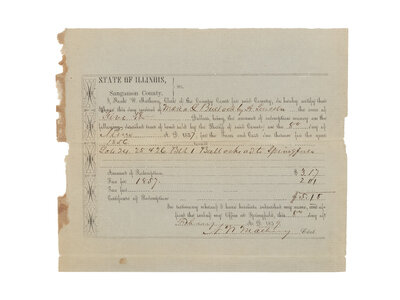 STATE OF ILLINOIS,
Sangamon County, } ss.
I, N. W. Matheny, Clerk of the County Court for said County, do hereby certify that
I have this day received of Maria L Bullock by A. Lincoln the sum of
Five Dollars, being the amount of redemption money on the
following described tract of land sold by the Sheriff of said County on the 8th day of
A. D. 1857, for the Taxes and Cost due thereon for the year
1856
Lots 24. 25 & 26 Blk 1 Bullocks ad to Springfield
Amount of Redemption $ 3.17
Tax for 1857. 2.01
Tax for
Certificate of Redemption $5.18
In testimony whereof I have hereunto subscribed my name, and affixed the seal of my Office at Springfield, this 8th day of
A. D. 185
N. W. Matheny Clerk